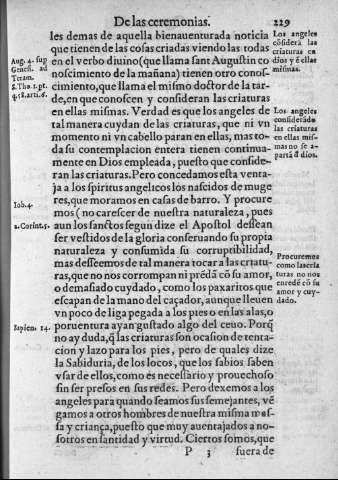 De las ceremonias. 229
les demas de aquella bienauenturada noticia
que tienen de las cosas criadas viendo las todas
en el verbo diuino (que llama sant Augustin co
noscimiento de la mañana) tienen otro conos-
cimiento, que llama el mismo doctor de la tar-
de, en que conoscen y consideran las criaturas
en ellas mismas. Verdad es que los angeles de
tal manera cuydan de las criaturas, que ni vn
momento ni vn cabello paran en ellas, mas to-
da su contemplacion entera tienen continua-
mente en Dios empleada, puesto que conside-
ran las criaturas. Pero concedamos esta venta-
ja a los spiritus angelicos los nascidos de muge
res, que moramos en casas de barro. Y procure
mos (no carescer de nuestra naturaleza, pues
aun los sanctos segun dize el Apostol dessean
ser vestidos de la gloria conseruando su propia
naturaleza y consumida su corruptibilidad,
mas desseemos de tal manera tocar a las criatu-
ras, que no nos corrompan ni prēdā cō su amor,
o demasiado cuydado, como los paxaritos que
escapan de la mano del caçador, aunque lleuen
vn poco de liga pegada a los pies o en las alas, o
poruentura ayan gustado algo del ceuo. Porq̄
no ay duda, q̄ las criaturas son ocasion de tenta-
cion y lazo para los pies, pero de quales dize
la Sabiduria, de los locos, que los sabios saben
vsar de ellos, como es necessario y prouechoso,
sin ser presos en sus redes. Pero dexemos a los
angeles para quando seamos sus semejantes, vē
gamos a otros hombres de nuestra misma mas-
sa y criança, puesto que muy auentajados a no-
sotros en santidad y virtud. Ciertos somos, que
P 3 fuera de
Aug. 4. sup
Genes. ad
literam.
S. Tho. 1. pt.
q. 58. arti. 6.
Iob. 4.
2. Corint. 5.
Sapien. 14.
Los angeles
cōsiderā las
criaturas en
dios y ē ellas
mismas.
Los angeles
considerādo
las criaturas
en ellas mis-
mas no se a-
partā d̄ dios.
Procuremos
como las cria
turas no nos
enredē cō su
amor y cuy-
dado.